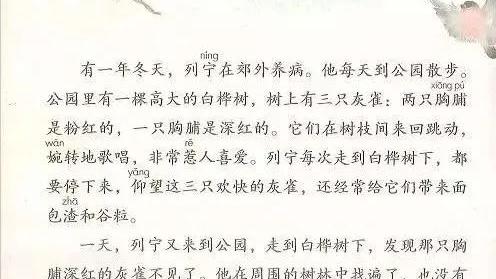 níng
有一年冬天，列宁在郊外养病。他每天到公园散步。
xiōng pú
公园里有一棵高大的白桦树，树上有三只灰雀：两只胸脯
是粉红的，一只胸脯是深红的。它们在树枝间来回跳动，
wǎn rě
婉转地歌唱，非常惹人喜爱。列宁每次走到白桦树下，都
yǎng
要停下来，仰望这三只欢快的灰雀，还经常给它们带来面
zhā
包渣和谷粒。
一天，列宁又来到公园，走到白桦树下，发现那只胸
脯深红的灰雀不见了。他在周围的树林中找遍了，也没有